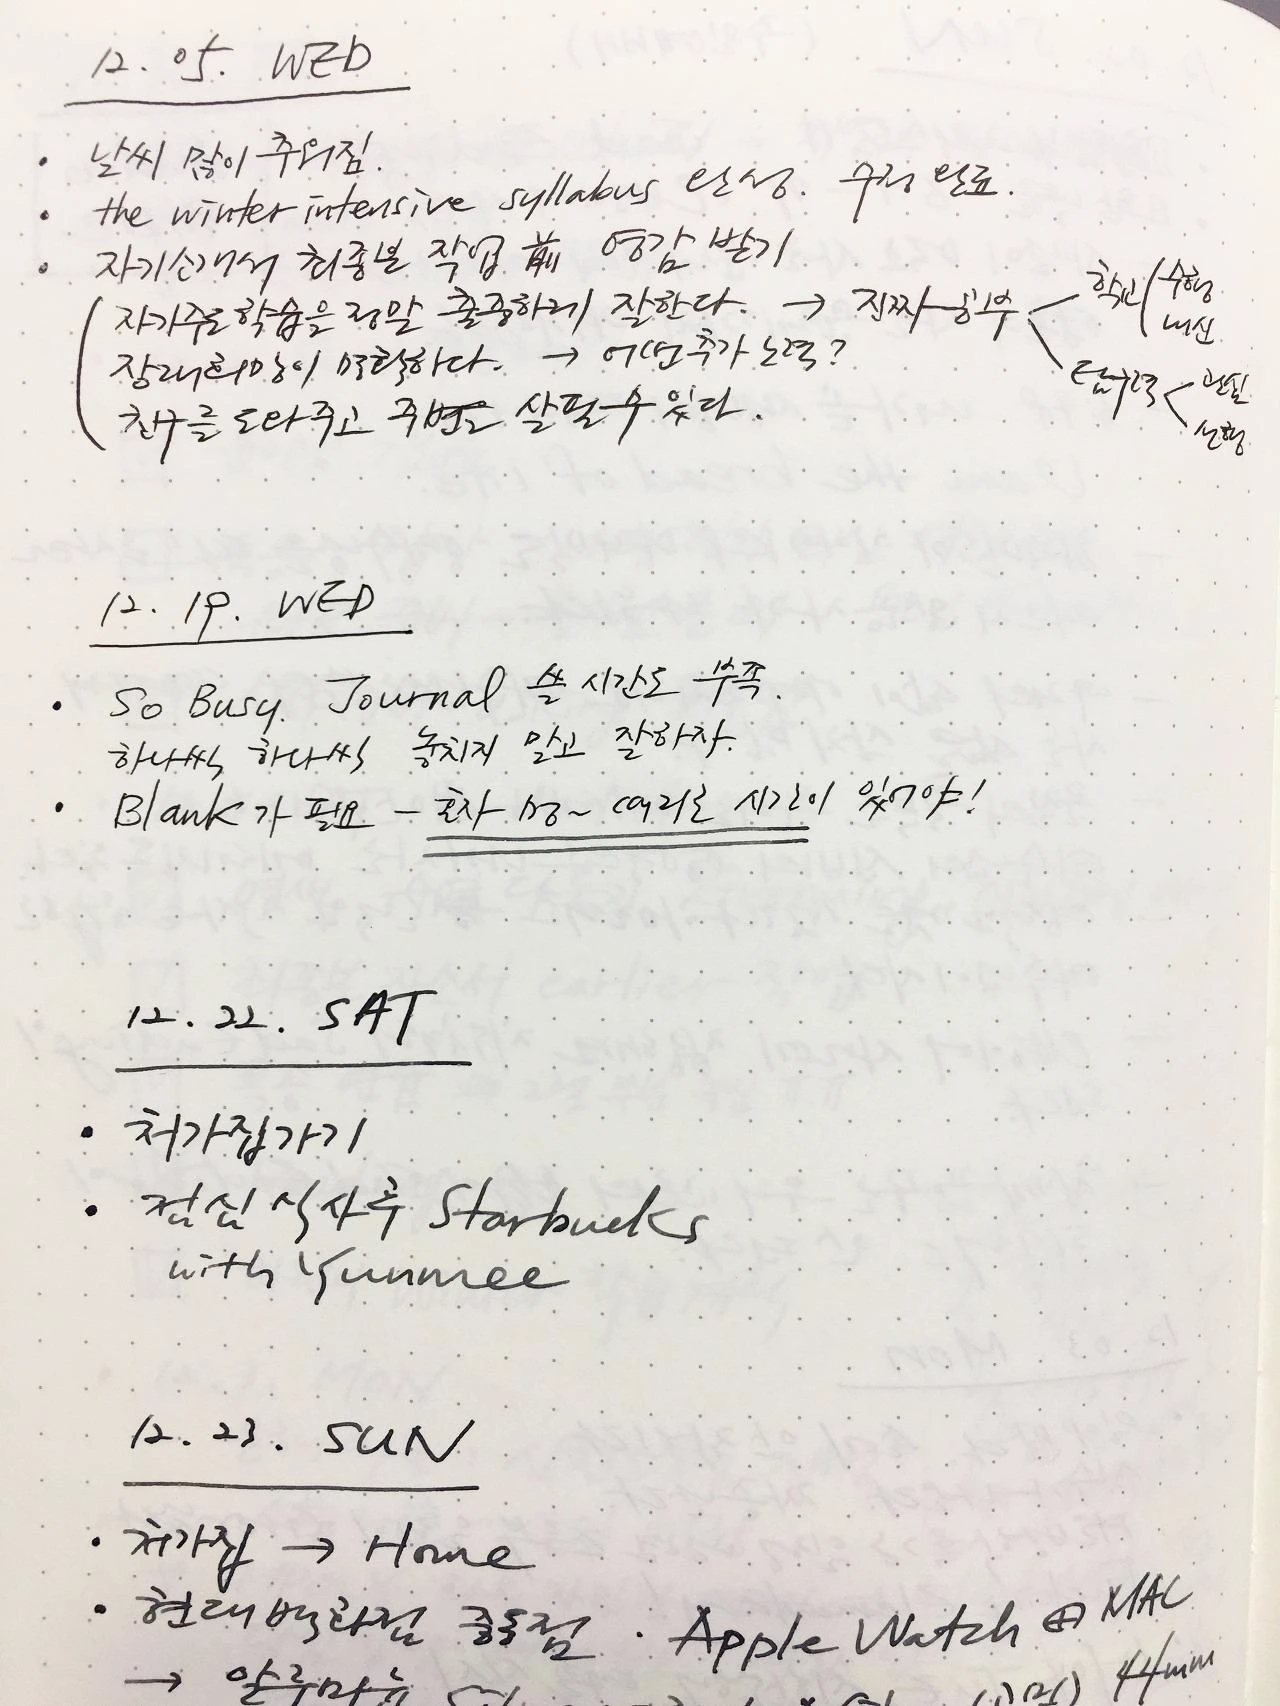 12. 05. WED
• 날씨 많이 추워짐.
• the winter intensive syllabus 완성. 수정 완료.
• 자기소개서 최종본 작업 前 영감 받기
자기주도학습을 정말 출중하게 잘한다. → 진짜 공부 학교 수행
내신
장래희망이 명확하다. → 어떤 추가 노력? 탐구력 관찰
실행
친구를 도와주고 주변을 살필 수 있다.
12. 19. WED
• So Busy. Journal 쓸 시간도 부족.
하나씩 하나씩 놓치지 말고 잘하자.
• Blank가 필요 - 혼자 멍~ 때리는 시간이 있어야!
12. 22. SAT
• 처가집가기
• 점심 식사후 Starbucks
with Yunmee
12. 23. SUN
• 처가집 → Home
• 현대백화점 중동점 · Apple Watch ⊕ MAC
→ 알루미늄 44mm